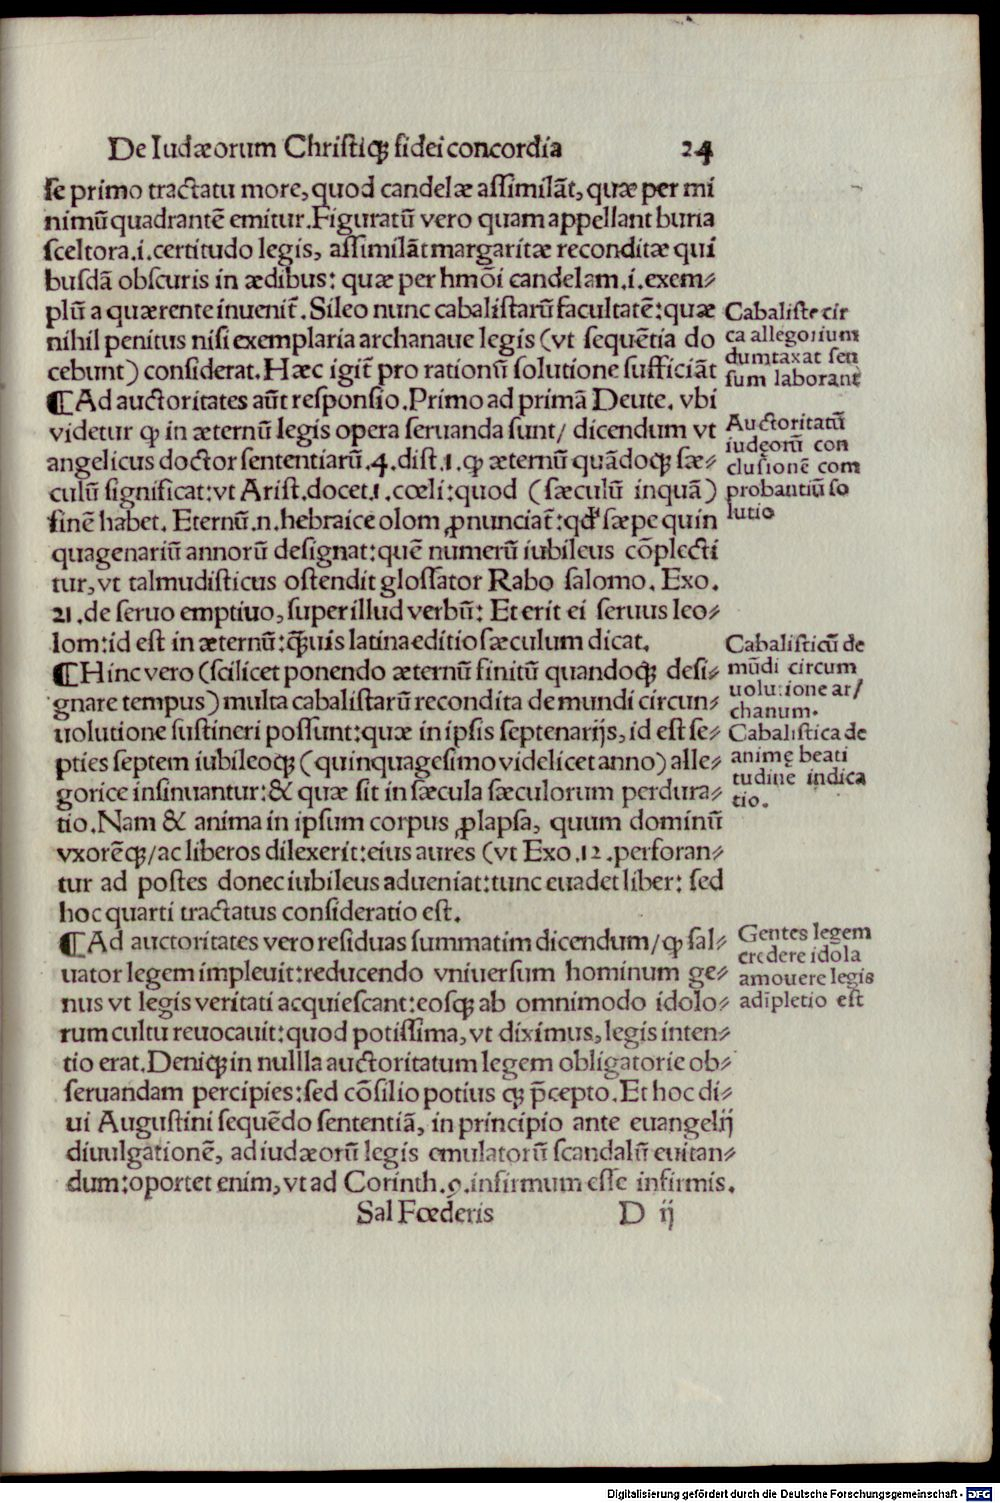 De Iudæorum Christiqꝫ fidei concordia 24
se primo tractatu more, quod candelæ assimilãt, quæ per mi
nimũ quadrantẽ emitur. Figuratũ vero quam appellant buria
sceltora .i. certitudo legis, assimilãt margaritæ reconditæ qui
busdã obscuris in ædibus: quæ per hmõi candelam .i. exem⸗
plũ a quærente inuenit̃. Sileo nunc cabalistarũ facultatẽ: quæ
nihil penitus nisi exemplaria archanaue legis (vt sequẽtia do
cebunt) considerat. Hæc igit̃ pro rationũ solutione sufficiãt
¶Ad auctoritates aũt responsio. Primo ad primã Deute. vbi
videtur ꝙ in æternũ legis opera seruanda sunt/ dicendum vt
angelicus doctor sententiarũ .4. dist .1. ꝙ æternũ quãdoqꝫ sæ⸗
culũ significat: vt Arist. docet .1. cœli: quod (sæculũ inquã)
finẽ habet. Eternũ .n. hebraice olom ꝓnunciat̃: qd̓ sæpe quin
quagenariũ annorũ designat: quẽ numerũ iubileus cõplecti
tur, vt talmudisticus ostendit glossator Rabo salomo. Exo.
21. de seruo emptiuo, super illud verbũ: Et erit ei seruus leo⸗
lom: id est in æternũ: q̃uis latina editio sæculum dicat.
¶Hinc vero (scilicet ponendo æternũ finitũ quandoqꝫ desi⸗
gnare tempus) multa cabalistarũ recondita de mundi circun⸗
uolutione sustineri possunt: quæ in ipsis septenarijs, id est se⸗
pties septem iubileoqꝫ (quinquagesimo videlicet anno) alle⸗
gorice insinuantur: & quæ sit in sæcula sæculorum perdura⸗
tio. Nam & anima in ipsum corpus ꝓlapsa, quum dominũ
vxorẽqꝫ/ ac liberos dilexerit: eius aures (vt Exo .12. perforan⸗
tur ad postes donec iubileus adueniat: tunc euadet liber: sed
hoc quarti tractatus consideratio est.
¶Ad auctoritates vero residuas summatim dicendum/ ꝙ sal⸗
uator legem impleuit: reducendo vniuersum hominum ge⸗
nus vt legis veritati acquiescant: eosqꝫ ab omnimodo idolo⸗
rum cultu reuocauit: quod potissima, vt diximus, legis inten⸗
tio erat. Deniqꝫ in nullla auctoritatum legem obligatorie ob⸗
seruandam percipies: sed cõsilio potius qꝫ p̃cepto. Et hoc di⸗
ui Augustini sequẽdo sententiã, in principio ante euangelij
diuulgationẽ, ad iudæorũ legis emulatorũ scandalũ euitan⸗
dum: oportet enim, vt ad Corinth. 9. infirmum esse infirmis.
Sal Fœderis D ij
Cabaliste cir
ca allegorium
dumtaxat sen
sum laborant
Auctoritatũ
iudęorũ con
clusionẽ com
probantiũ so
lutio
Cabalisticũ de
mũdi circum
uolutione ar/
chanum.
Cabalistica de
animę beati
tudinę indica
tio.
Gentes legem
credere idola
amouere legis
adĩpletio est
Digitalisierung gefördert durch die Deutsche Forschungsgemeinschaft - DFG